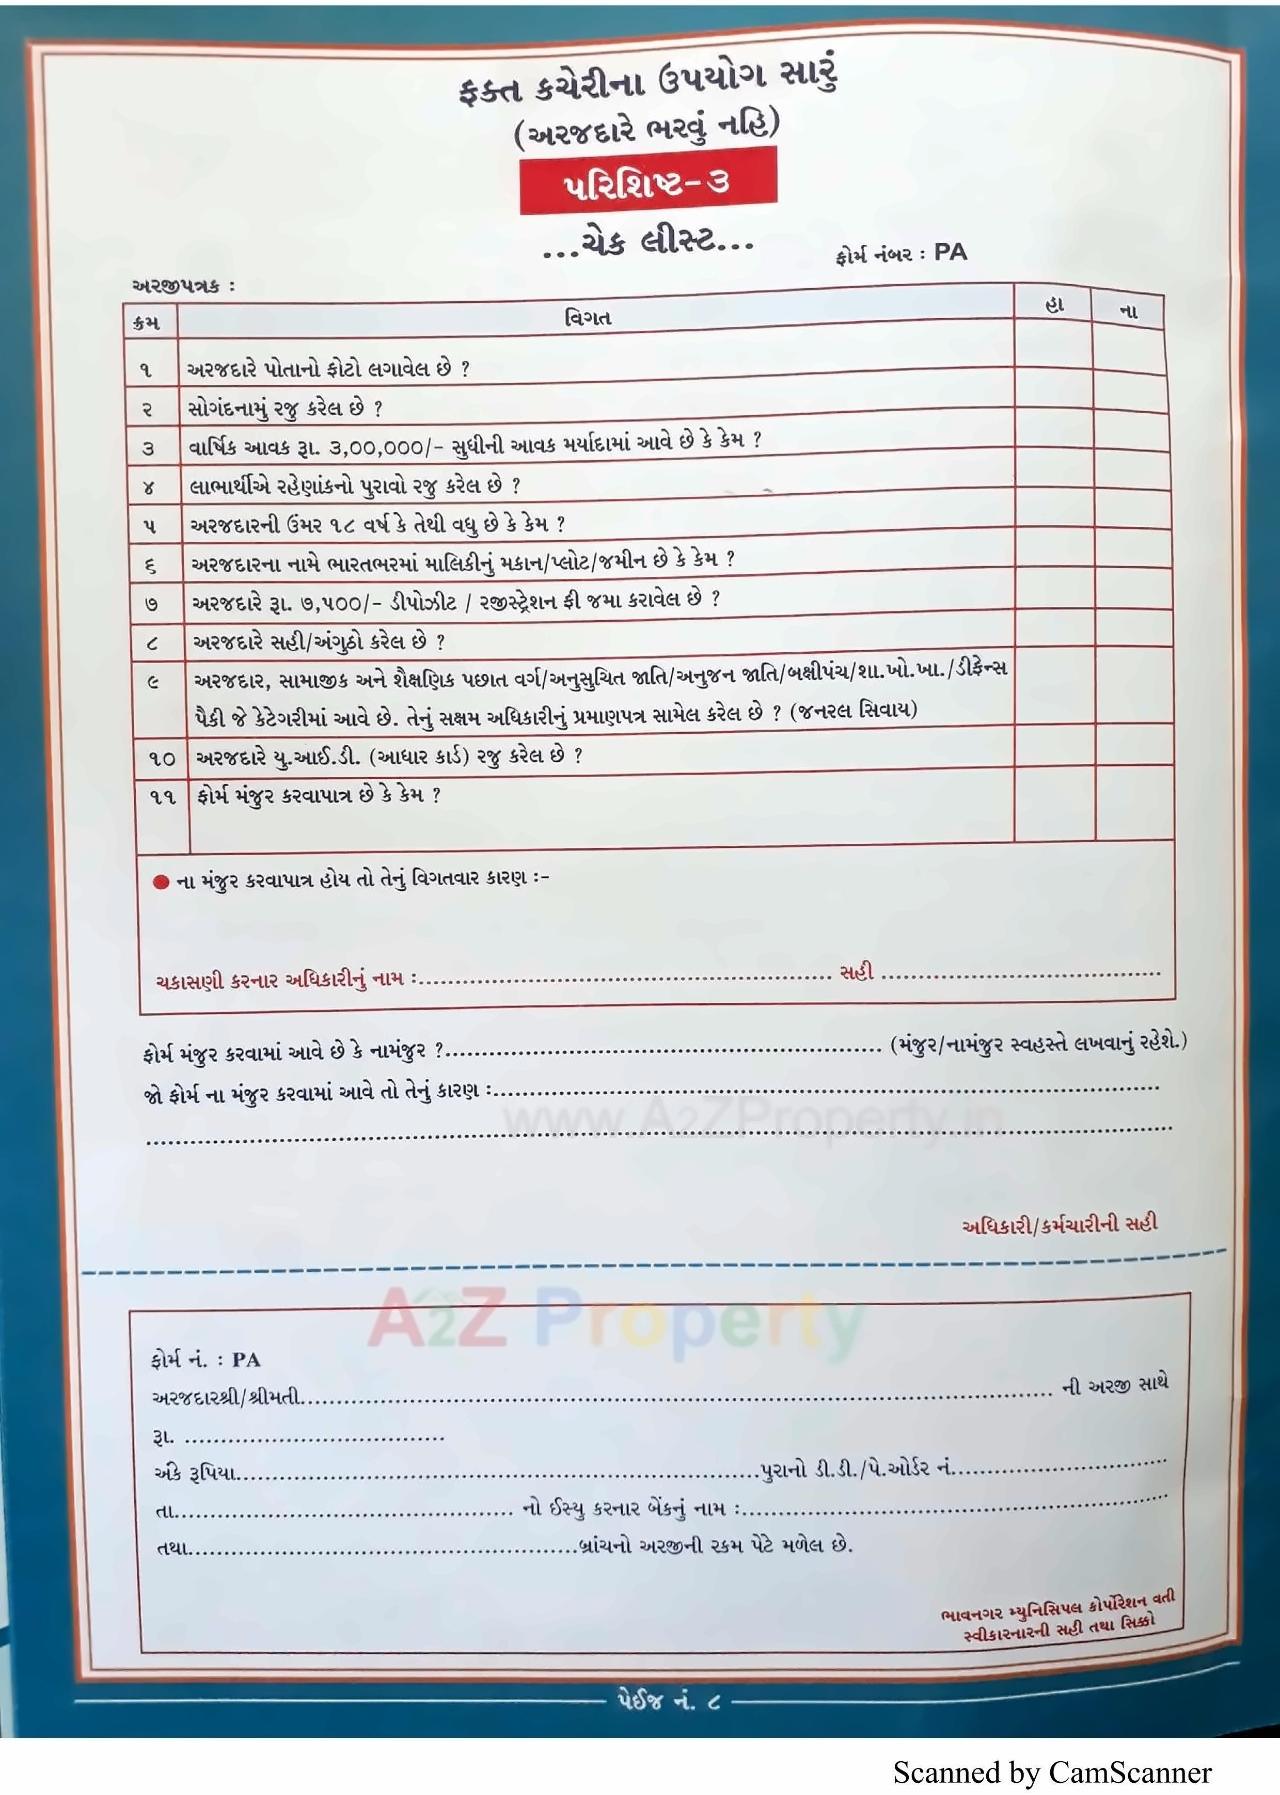 ફક્ત કચેરીના ઉપયોગ સારું
(અરજદારે ભરવું નહિ)
પરિશિષ્ટ-૩
...ચેક લીસ્ટ...
ફોર્મ નંબર : PA
અરજીપત્રક :
ક્રમ વિગત હા ના
૧ અરજદારે પોતાનો ફોટો લગાવેલ છે ?
૨ સોગંદનામું રજુ કરેલ છે ?
૩ વાર્ષિક આવક રૂા. ૩,૦૦,૦૦૦/- સુધીની આવક મર્યાદામાં આવે છે કે કેમ ?
૪ લાભાર્થીએ રહેણાંકનો પુરાવો રજુ કરેલ છે ?
૫ અરજદારની ઉંમર ૧૮ વર્ષ કે તેથી વધુ છે કે કેમ ?
૬ અરજદારના નામે ભારતભરમાં માલિકીનું મકાન/પ્લોટ/જમીન છે કે કેમ ?
૭ અરજદારે રૂા. ૭,૫૦૦/- ડીપોઝીટ / રજીસ્ટ્રેશન ફી જમા કરાવેલ છે ?
૮ અરજદારે સહી/અંગુઠો કરેલ છે ?
૯ અરજદાર, સામાજીક અને શૈક્ષણિક પછાત વર્ગ/અનુસુચિત જાતિ/અનુજન જાતિ/બક્ષીપંચ/શા.ખો.ખા./ડીફેન્સ
પૈકી જે કેટેગરીમાં આવે છે. તેનું સક્ષમ અધિકારીનું પ્રમાણપત્ર સામેલ કરેલ છે ? (જનરલ સિવાય)
૧૦ અરજદારે યુ.આઈ.ડી. (આધાર કાર્ડ) રજુ કરેલ છે ?
૧૧ ફોર્મ મંજુર કરવાપાત્ર છે કે કેમ ?
● ના મંજુર કરવાપાત્ર હોય તો તેનું વિગતવાર કારણ :-
ચકાસણી કરનાર અધિકારીનું નામ :.......................................................... સહી ........................................
ફોર્મ મંજુર કરવામાં આવે છે કે નામંજુર ?.............................................................. (મંજુર/નામંજુર સ્વહસ્તે લખવાનું રહેશે.)
જો ફોર્મ ના મંજુર કરવામાં આવે તો તેનું કારણ :...............................................................................................
..................................................................................................................................................
www.A2ZProperty.in
અધિકારી/કર્મચારીની સહી
A2Z Property
ફોર્મ નં. : PA
અરજદારશ્રી/શ્રીમતી........................................................................................................... ની અરજી સાથે
રૂા. .....................................
અંકે રૂપિયા...........................................................................પુરાનો ડી.ડી./પે.ઓર્ડર નં..............................
તા................................................. નો ઈસ્યુ કરનાર બેંકનું નામ :.............................................................
તથા........................................................બ્રાંચનો અરજીની રકમ પેટે મળેલ છે.
ભાવનગર મ્યુનિસિપલ કોર્પોરેશન વતી
સ્વીકારનારની સહી તથા સિક્કો
પેઈજ નં. ૮
Scanned by CamScanner